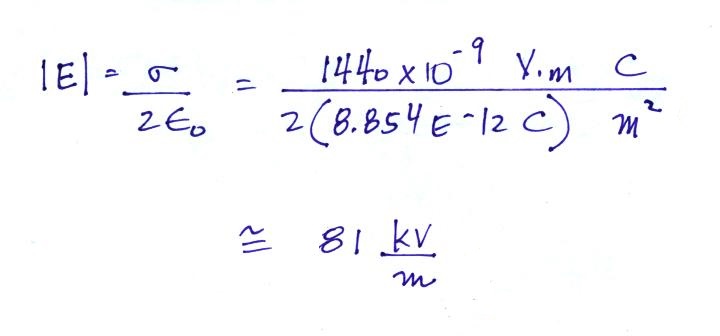 |E| = σ / 2ϵ₀ = 1440 x 10⁻⁹ V.m C / 2(8.854 E-12 C) m²
≅ 81 kV / m